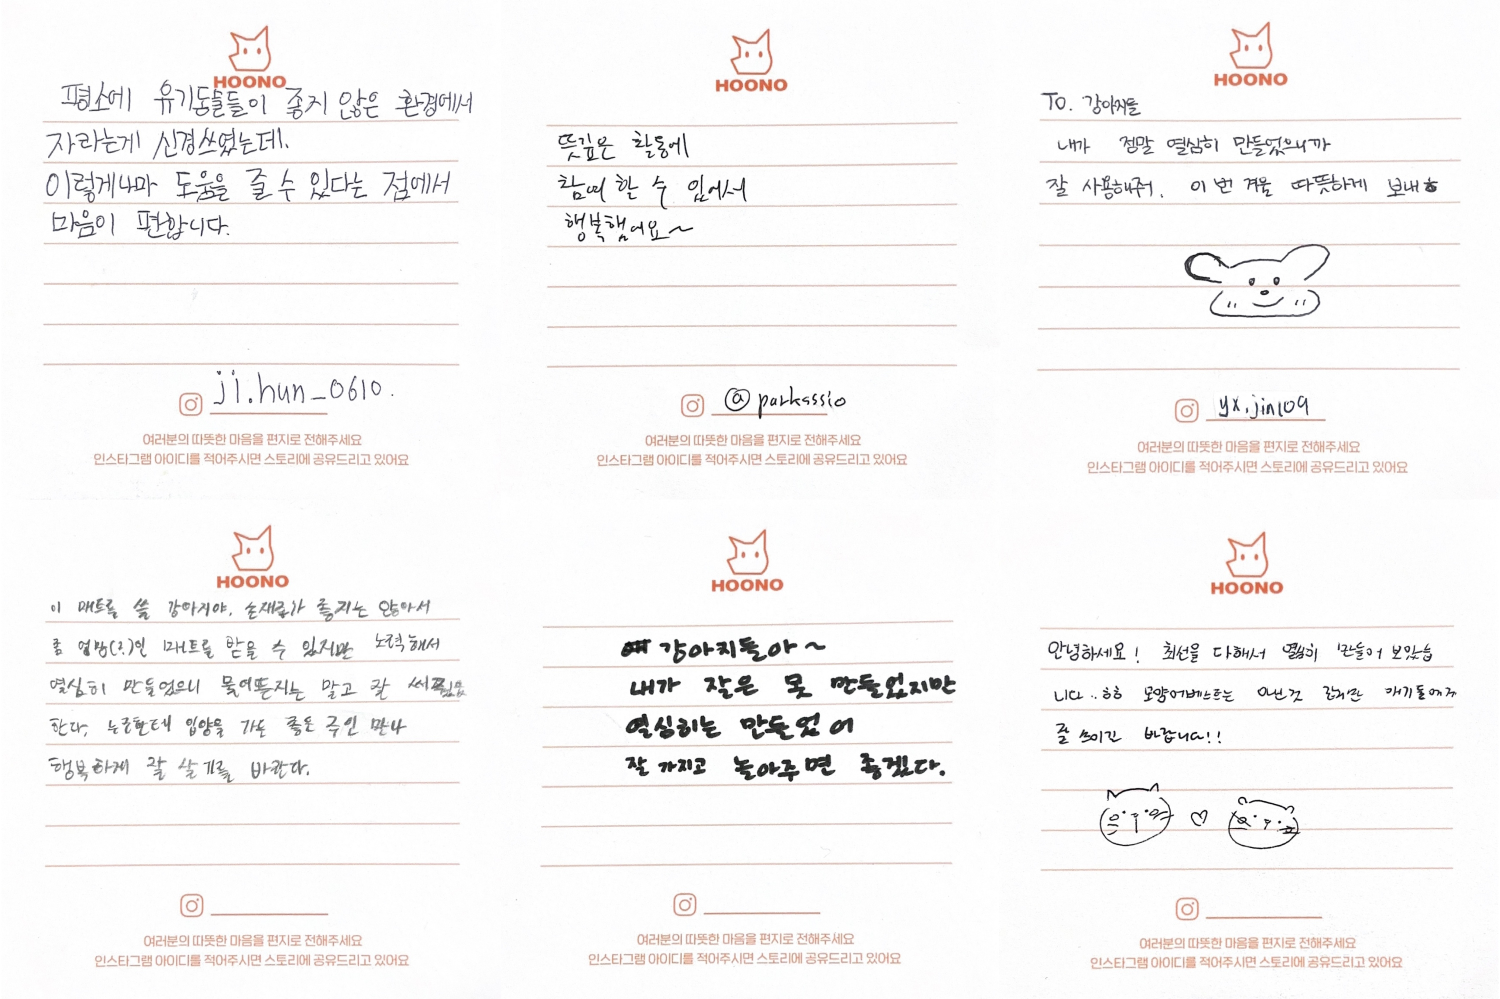 HOONO
평소에 유기동물들이 좋지 않은 환경에서
자라는게 신경쓰였는데.
이렇게나마 도움을 줄 수 있다는 점에서
마음이 편합니다.
ji.hun_0610.
여러분의 따뜻한 마음을 편지로 전해주세요
인스타그램 아이디를 적어주시면 스토리에 공유드리고 있어요
HOONO
뜻깊은 활동에
참여 할 수 있어서
행복했어요~
@parkassio
여러분의 따뜻한 마음을 편지로 전해주세요
인스타그램 아이디를 적어주시면 스토리에 공유드리고 있어요
HOONO
To. 강아지들
내가 정말 열심히 만들었으니까
잘 사용해줘. 이번 겨울 따뜻하게 보내ㅎ
yx.jin109
여러분의 따뜻한 마음을 편지로 전해주세요
인스타그램 아이디를 적어주시면 스토리에 공유드리고 있어요
HOONO
이 매트를 쓸 강아지야. 손재주가 좋지는 않아서
좀 엉망(?)인 매트를 받을 수 있지만 노력해서
열심히 만들었으니 물어뜯지는 말고 잘
한다. 누군한테 입양을 가든 좋은 주인 만나
행복하게 잘 살기를 바란다.
여러분의 따뜻한 마음을 편지로 전해주세요
인스타그램 아이디를 적어주시면 스토리에 공유드리고 있어요
HOONO
강아지들아~
내가 잘은 못 만들었지만
열심히는 만들었어
잘 가지고 놀아주면 좋겠다.
여러분의 따뜻한 마음을 편지로 전해주세요
인스타그램 아이디를 적어주시면 스토리에 공유드리고 있어요
HOONO
안녕하세요! 최선을 다해서 열심히 만들어 보았습
니다..ㅎㅎ 모양이 베스트는 아닌것 같지만 애기들에게
잘 쓰이길 바랍니다!!
여러분의 따뜻한 마음을 편지로 전해주세요
인스타그램 아이디를 적어주시면 스토리에 공유드리고 있어요